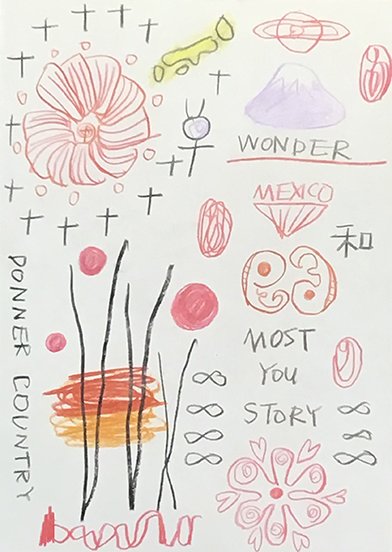 WONDER
MEXICO
和
DONNER COUNTRY
MOST
YOU
STORY